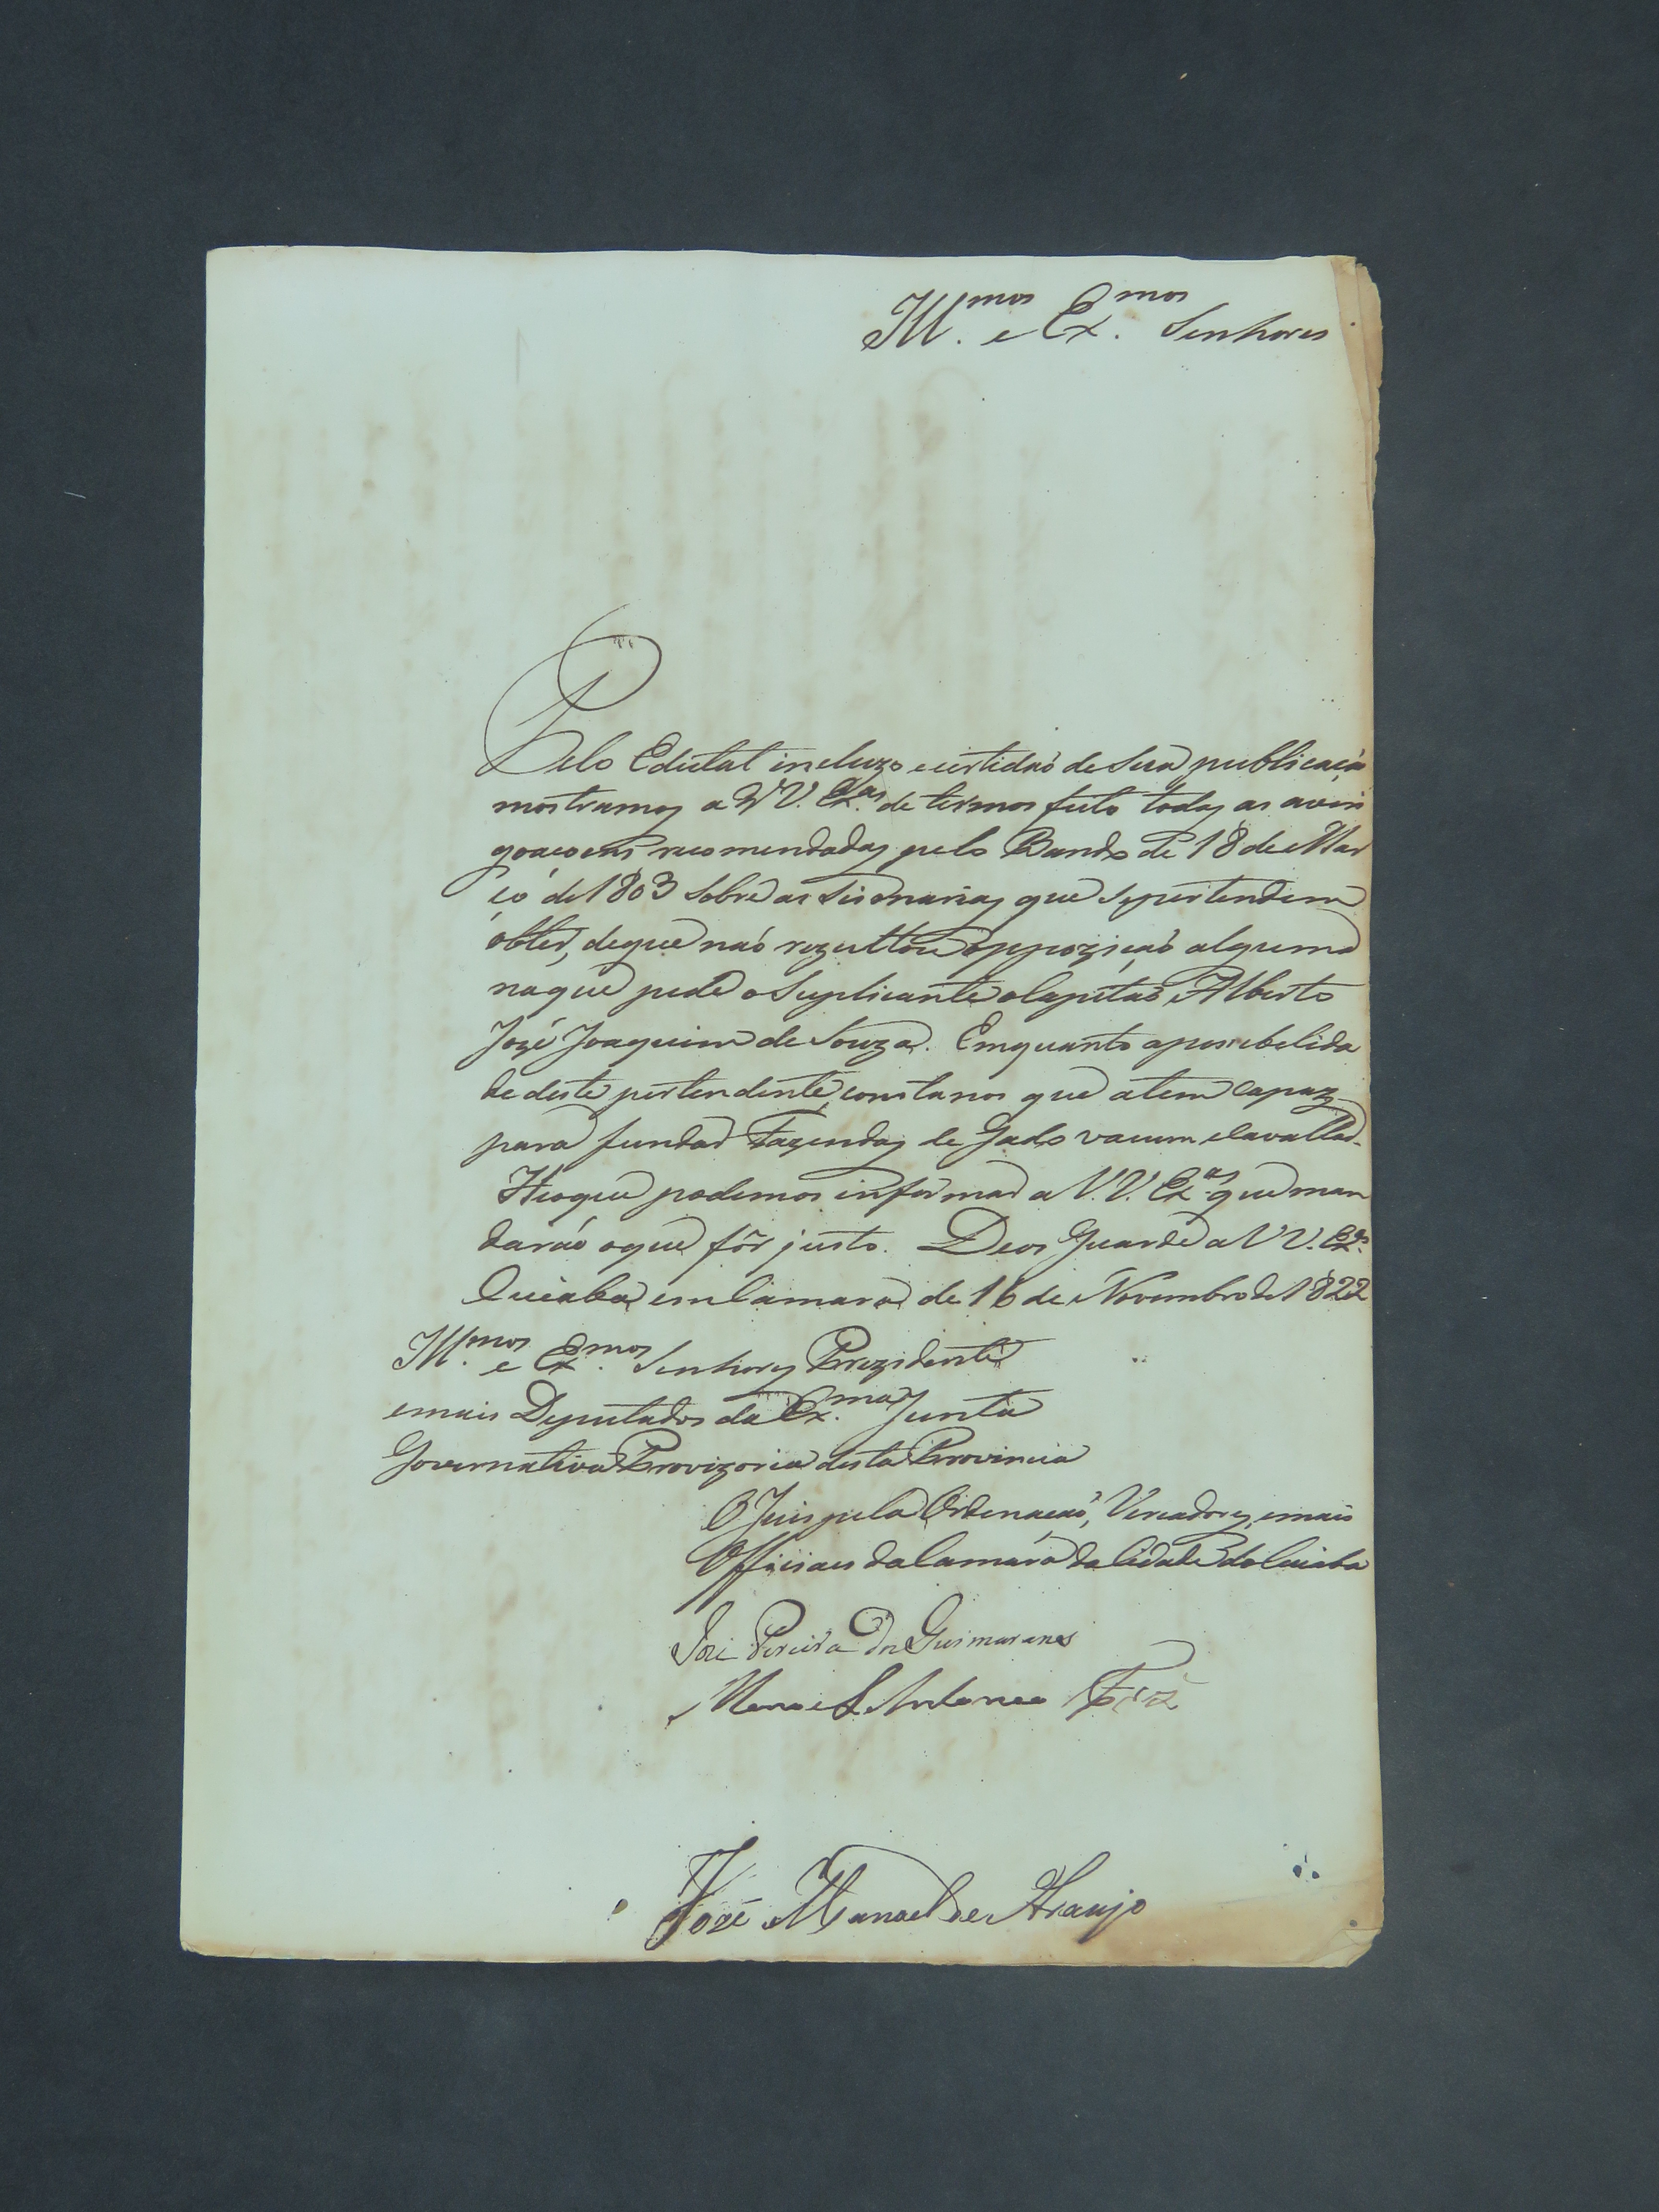 Ill.mos e Ex.mos Senhores
Pelo Edital incluzo e certidaõ de sua publicaçaõ
mostramos a VV. Ex.as de termos feito todas as averi
goaçoens recomendadas pelo Bando de 18 de Mar
ço de 1803 sobre as sismarias que se pertendem
obter, de que naõ rezultou oppoziçaõ alguma
na que pede o Suplicante o Capitaõ Alberto
José Joaquim de Souza. Emquanto a possebelida
de deste pertendente, consta nos que a tem capaz
para fundar Fazendas de Gado vacum e cavallar.
He o que podemos informar a V.V. Ex.as que man
daráõ o que fôr justo. Deos Guarde a VV. Ex.as
Cuiaba em Camara de 16 de Novembro de 1822
Ill.mos e Ex.mos Senhores Prezidente
e mais Deputados da Ex.ma Junta
Governativa Provizoria desta Provincia
O Juis pela Ordenaçaõ, Vereadores, e mais
Officiaes da Camara da Cidade do Cuiaba
José Pereira dos Guimaraens
Manoel Antonio
José Manoel de Araujo